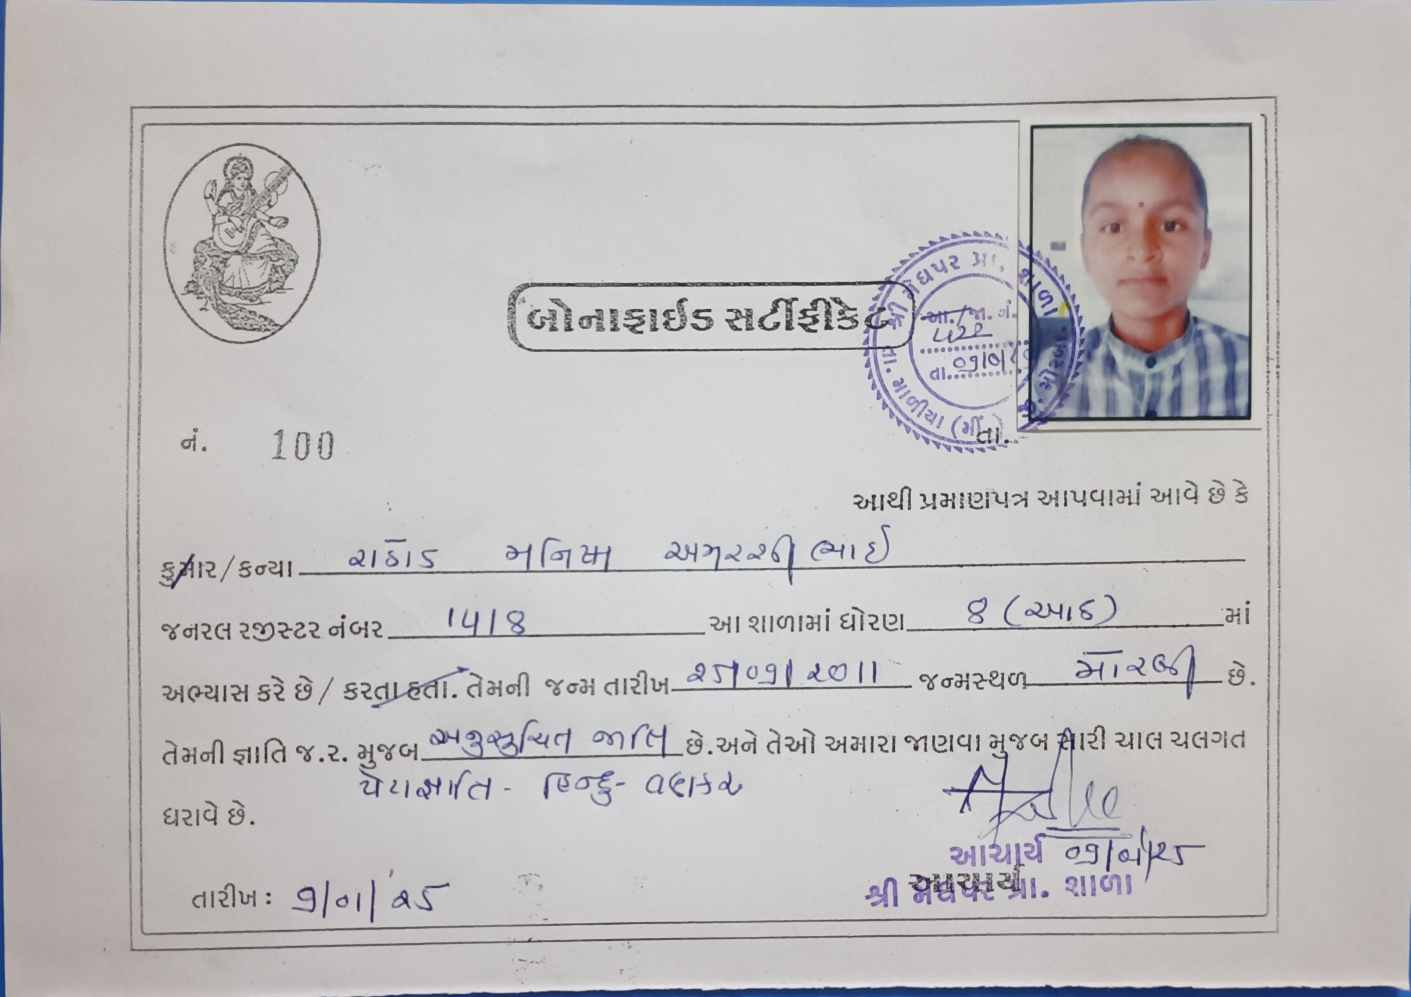 બોનાફાઈડ સર્ટીફીકેટ
શ્રી મેઘપર પ્રા. શાળા
તા.
નં. 100
તા.
આથી પ્રમાણપત્ર આપવામાં આવે છે કે
કુમાર/કન્યા રાઠોડ મનિષા અમરશીભાઈ
જનરલ રજીસ્ટર નંબર 1418 આ શાળામાં ધોરણ 8 (આઠ) માં
અભ્યાસ કરે છે / કરતા હતા. તેમની જન્મ તારીખ ૨૫/૦૧/૨૦૧૧ જન્મસ્થળ મોરબી છે.
તેમની જ્ઞાતિ જ.ર. મુજબ અનુસુચિત જાતિ છે.અને તેઓ અમારા જાણવા મુજબ સારી ચાલ ચલગત
પેટાજ્ઞાતિ - હિન્દુ- વણકર
ધરાવે છે.
આચાર્ય
તારીખ:
આચાર્ય
શ્રી મેઘપર પ્રા. શાળા